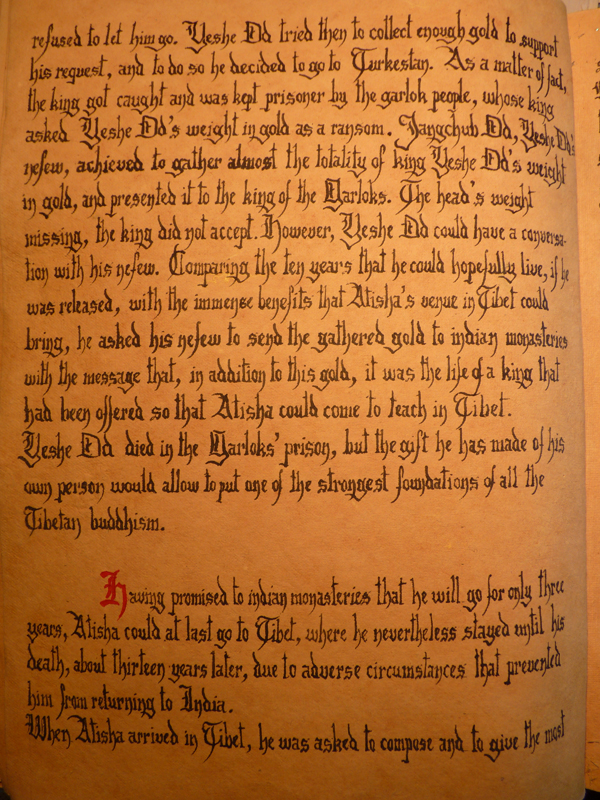 refused to let him go. Yeshe Od tried then to collect enough gold to support
his request, and to do so he decided to go to Turkestan. As a matter of fact,
the king got caught and was kept prisoner by the garlok people, whose king
asked Yeshe Od's weight in gold as a ransom. Jangchub Od, Yeshe Od's
nefew, achieved to gather almost the totality of king Yeshe Od's weight
in gold, and presented it to the king of the Garloks. The head's weight
missing, the king did not accept. However, Yeshe Od could have a conversa-
tion with his nefew. Comparing the ten years that he could hopefully live, if he
was released, with the immense benefits that Atisha's venue in Tibet could
bring, he asked his nefew to send the gathered gold to indian monasteries
with the message that, in addition to this gold, it was the life of a king that
had been offered so that Atisha could come to teach in Tibet.
Yeshe Od died in the Garloks' prison, but the gift he has made of his
own person would allow to put one of the strongest foundations of all the
Tibetan buddhism.
Having promised to indian monasteries that he will go for only three
years, Atisha could at last go to Tibet, where he nevertheless stayed until his
death, about thirteen years later, due to adverse circumstances that prevented
him from returning to India.
When Atisha arrived in Tibet, he was asked to compose and to give the most